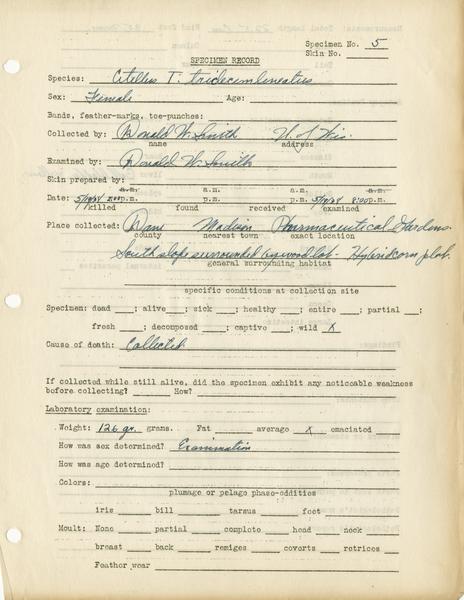 Specimen No. 5
Skin No.
SPECIMEN RECORD
Species: Citellus T. tridecemlineatus
Sex: Female Age:
Bands, feather-marks, toe-punches:
Collected by: Donald W. Smith U. of Wis.
name address
Examined by: Donald W. Smith
Skin prepared by:
a.m. a.m. a.m. a.m.
Date: p.m. p.m. p.m. 8:00 p.m.
killed found received examined
Place collected: Dane Madison Pharmaceutical Gardens
county nearest town exact location
South slope surrounded Hybrid corn plot.
general surrounding habitat
specific conditions at collection site
Specimen: dead ; alive ; sick ; healthy ; entire ; partial ;
fresh ; decomposed ; captive ; wild X
Cause of death: Collected
If collected while still alive, did the specimen exhibit any noticable weakness
before collecting? How?
Laboratory examination:
Weight: 126 gr. grams. Fat average X emaciated
How was sex determined? Examination
How was age determined?
Colors:
plumage or pelage phase-oddities
iris bill tarsus feet
Moult: None partial complete head neck
breast back remiges coverts retrices
Feather wear